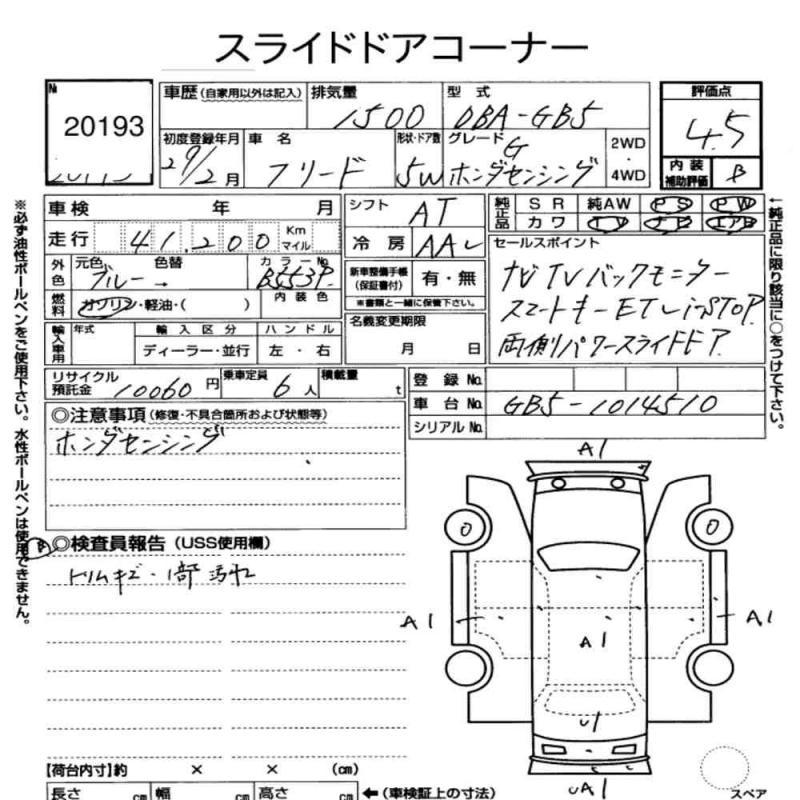 スライドドアコーナー
№ 20193
車歴 (自家用以外は記入)
排気量 1500
型式 DBA-GB5
評価点 4.5
初度登録年月 29/2月
車名 フリード
形状・ドア数 5W
グレード G ホンダセンシング
2WD
4WD
内装補助評価 B
車検 年 月
シフト AT
純正品 SR 純AW PS PW
カワ TV エB エアB
走行 41,200 Km マイル
冷房 AAC
セールスポイント
ナビTVバックモニター
スマートキーETC i-STOP
両側パワースライドドア
外色 元色 ブルー 色替 カラーNo. B553P
新車整備手帳(保証書付) 有・無
※書類と一緒に保管下さい。
燃料 ガソリン・軽油・( ) 内装色
名義変更期限 月 日
輸入車用 年式 輸入区分 ハンドル
ディーラー・並行 左・右
リサイクル預託金 10060円
乗車定員 6人
積載量 t
登録 No.
車台 No. GB5-1014510
シリアル No.
◎注意事項 (修復・不具合箇所および状態等)
ホンダセンシング
B ◎検査員報告 (USS使用欄)
トリムキズ・1部汚れ
A1
0 0
A1 A1 A1
U1
UA1
スペア
【荷台内寸】約 × × (cm)
長さ cm 幅 cm 高さ cm ←(車検証上の寸法)
※必ず油性ボールペンをご使用下さい。水性ボールペンは使用できません。
←純正品に限り該当に○をつけて下さい。